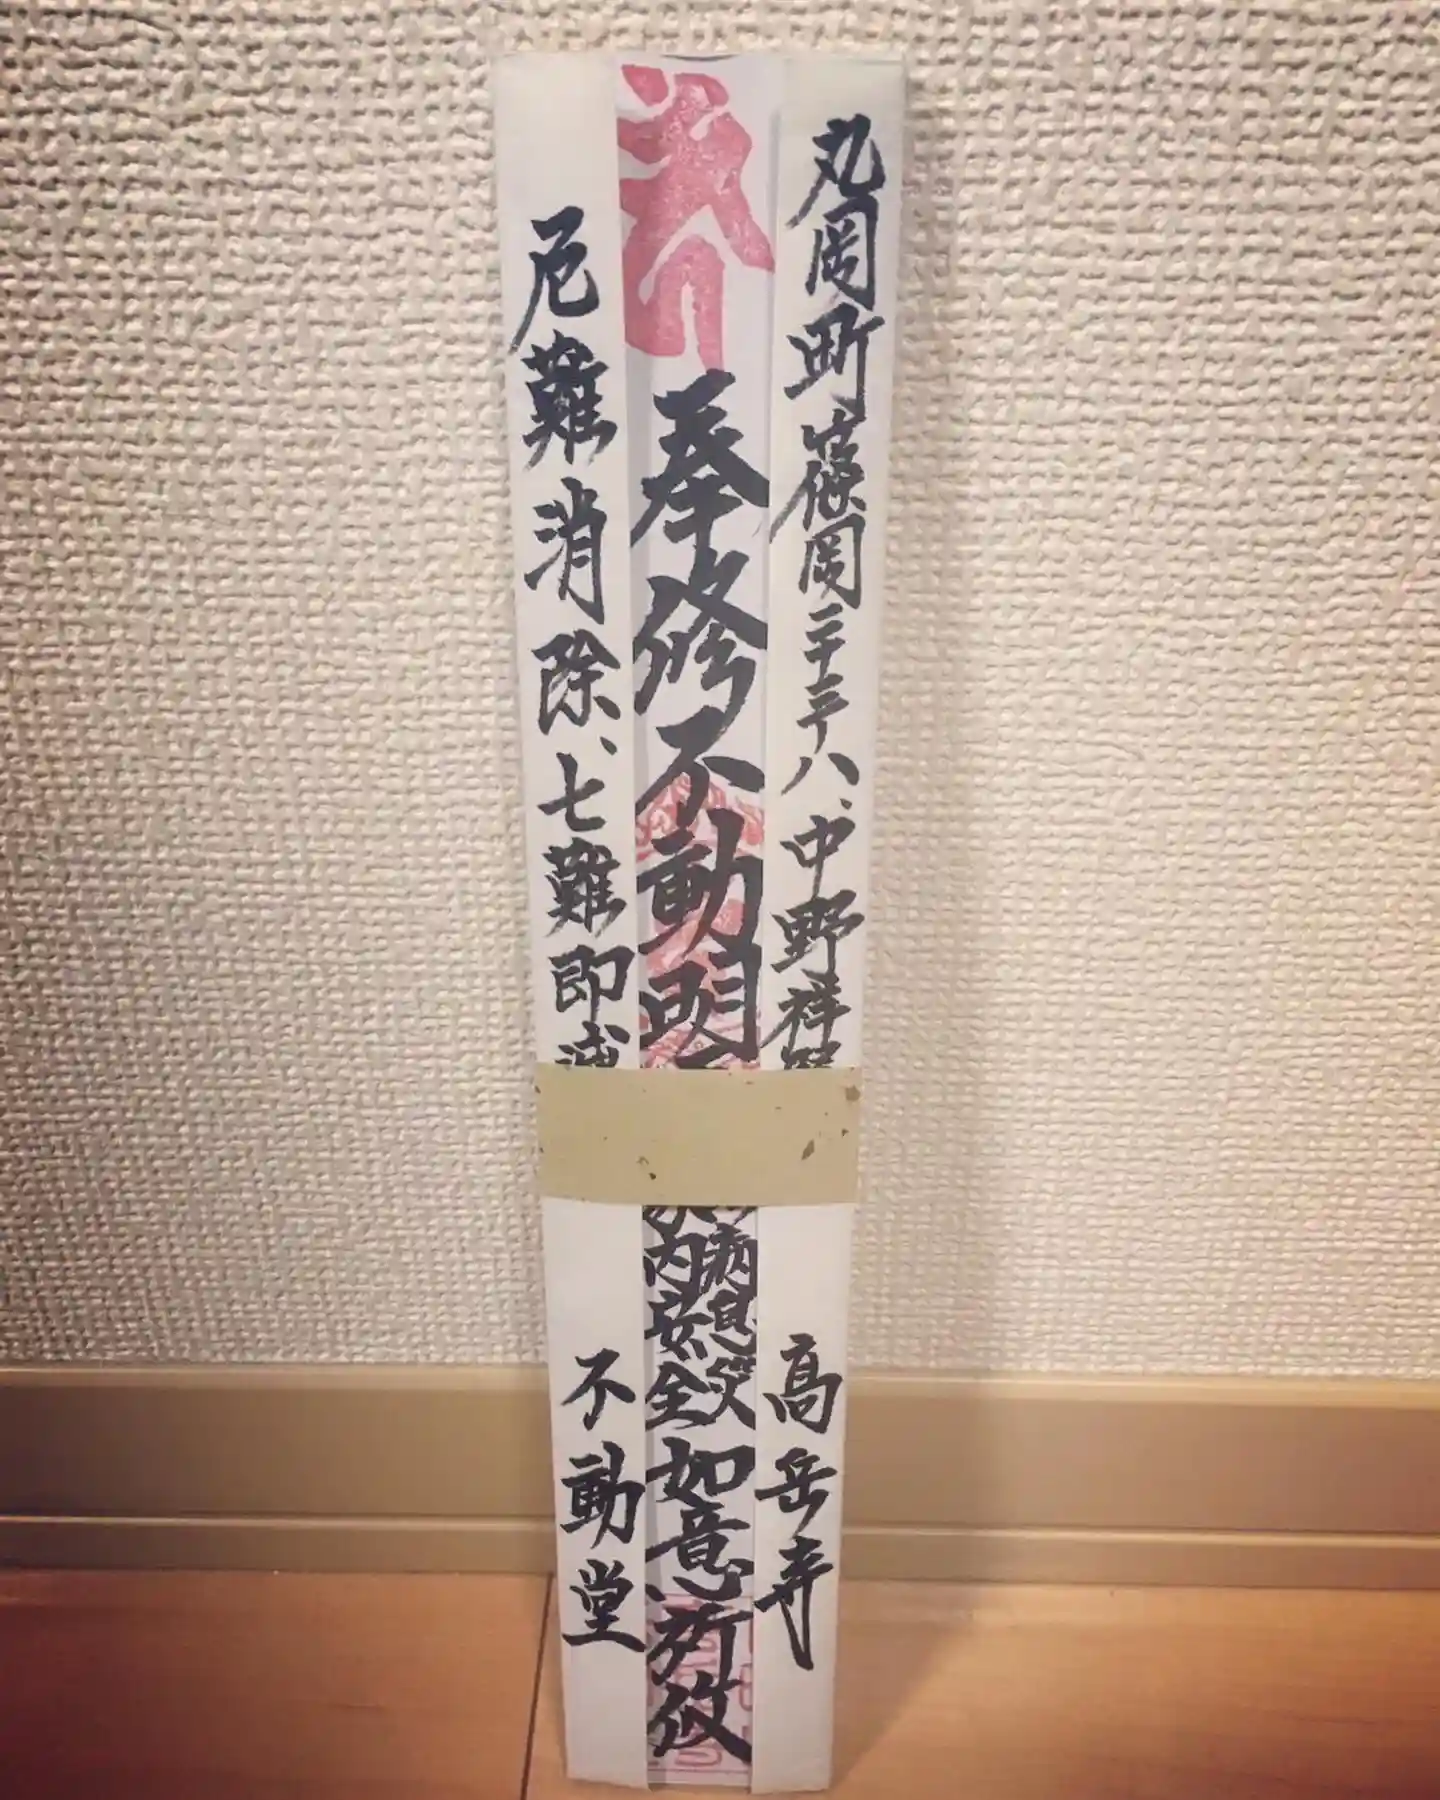 丸岡町篠岡二十三ノ八、中野祥
高岳寺
奉修不動明
病息災
内安全
如意所攸
厄難消除、七難即滅
不動堂